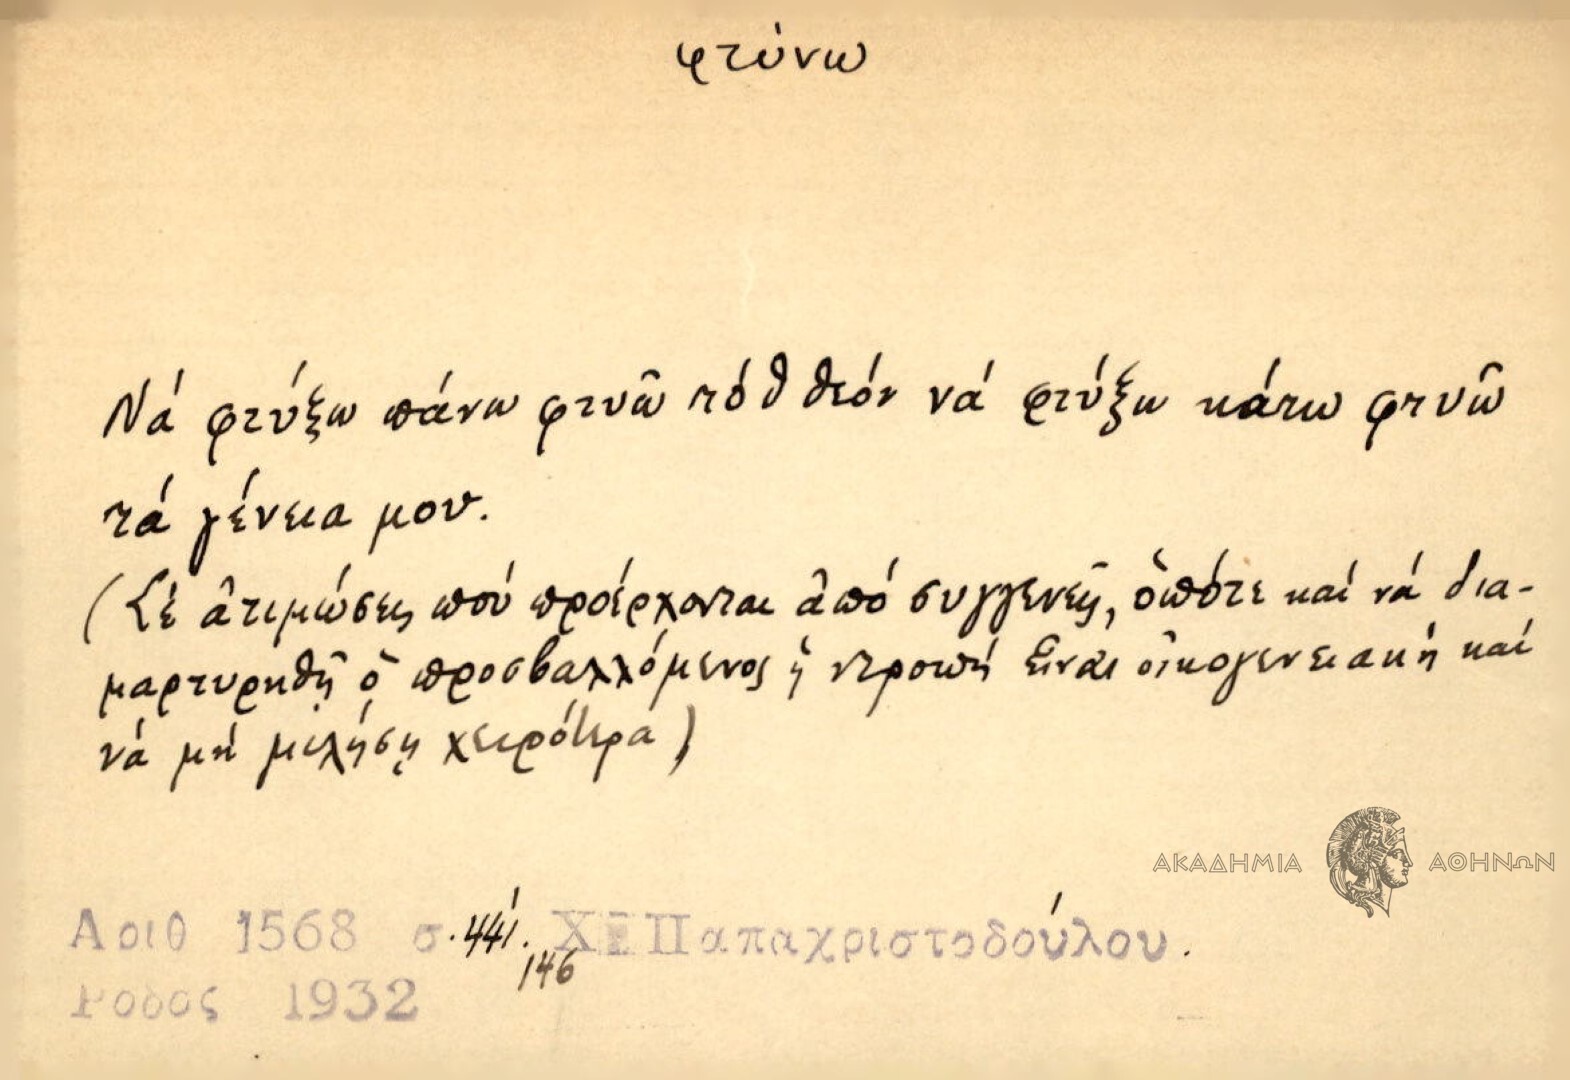 φτύνω
Νά φτύξω πάνω φτυῶ τόθ θεόν νά φτύξω κάτω φτυῶ
τά γένεια μου.
(Σέ ἀτιμώσεις πού προέρχονται ἀπό συγγενεῖς, ὁπότε καί νά δια-
μαρτυρηθῇ ὁ προσβαλλόμενος ἡ ντροπή εἶναι οἰκογενειακή καί
νά μή μιλήσῃ χειρότερα)
ΑΚΑΔΗΜΙΑ ΑΘΗΝΩΝ
Αριθ 1568 σ. 441. Χ Παπαχριστοδούλου.
146
Ροδος 1932